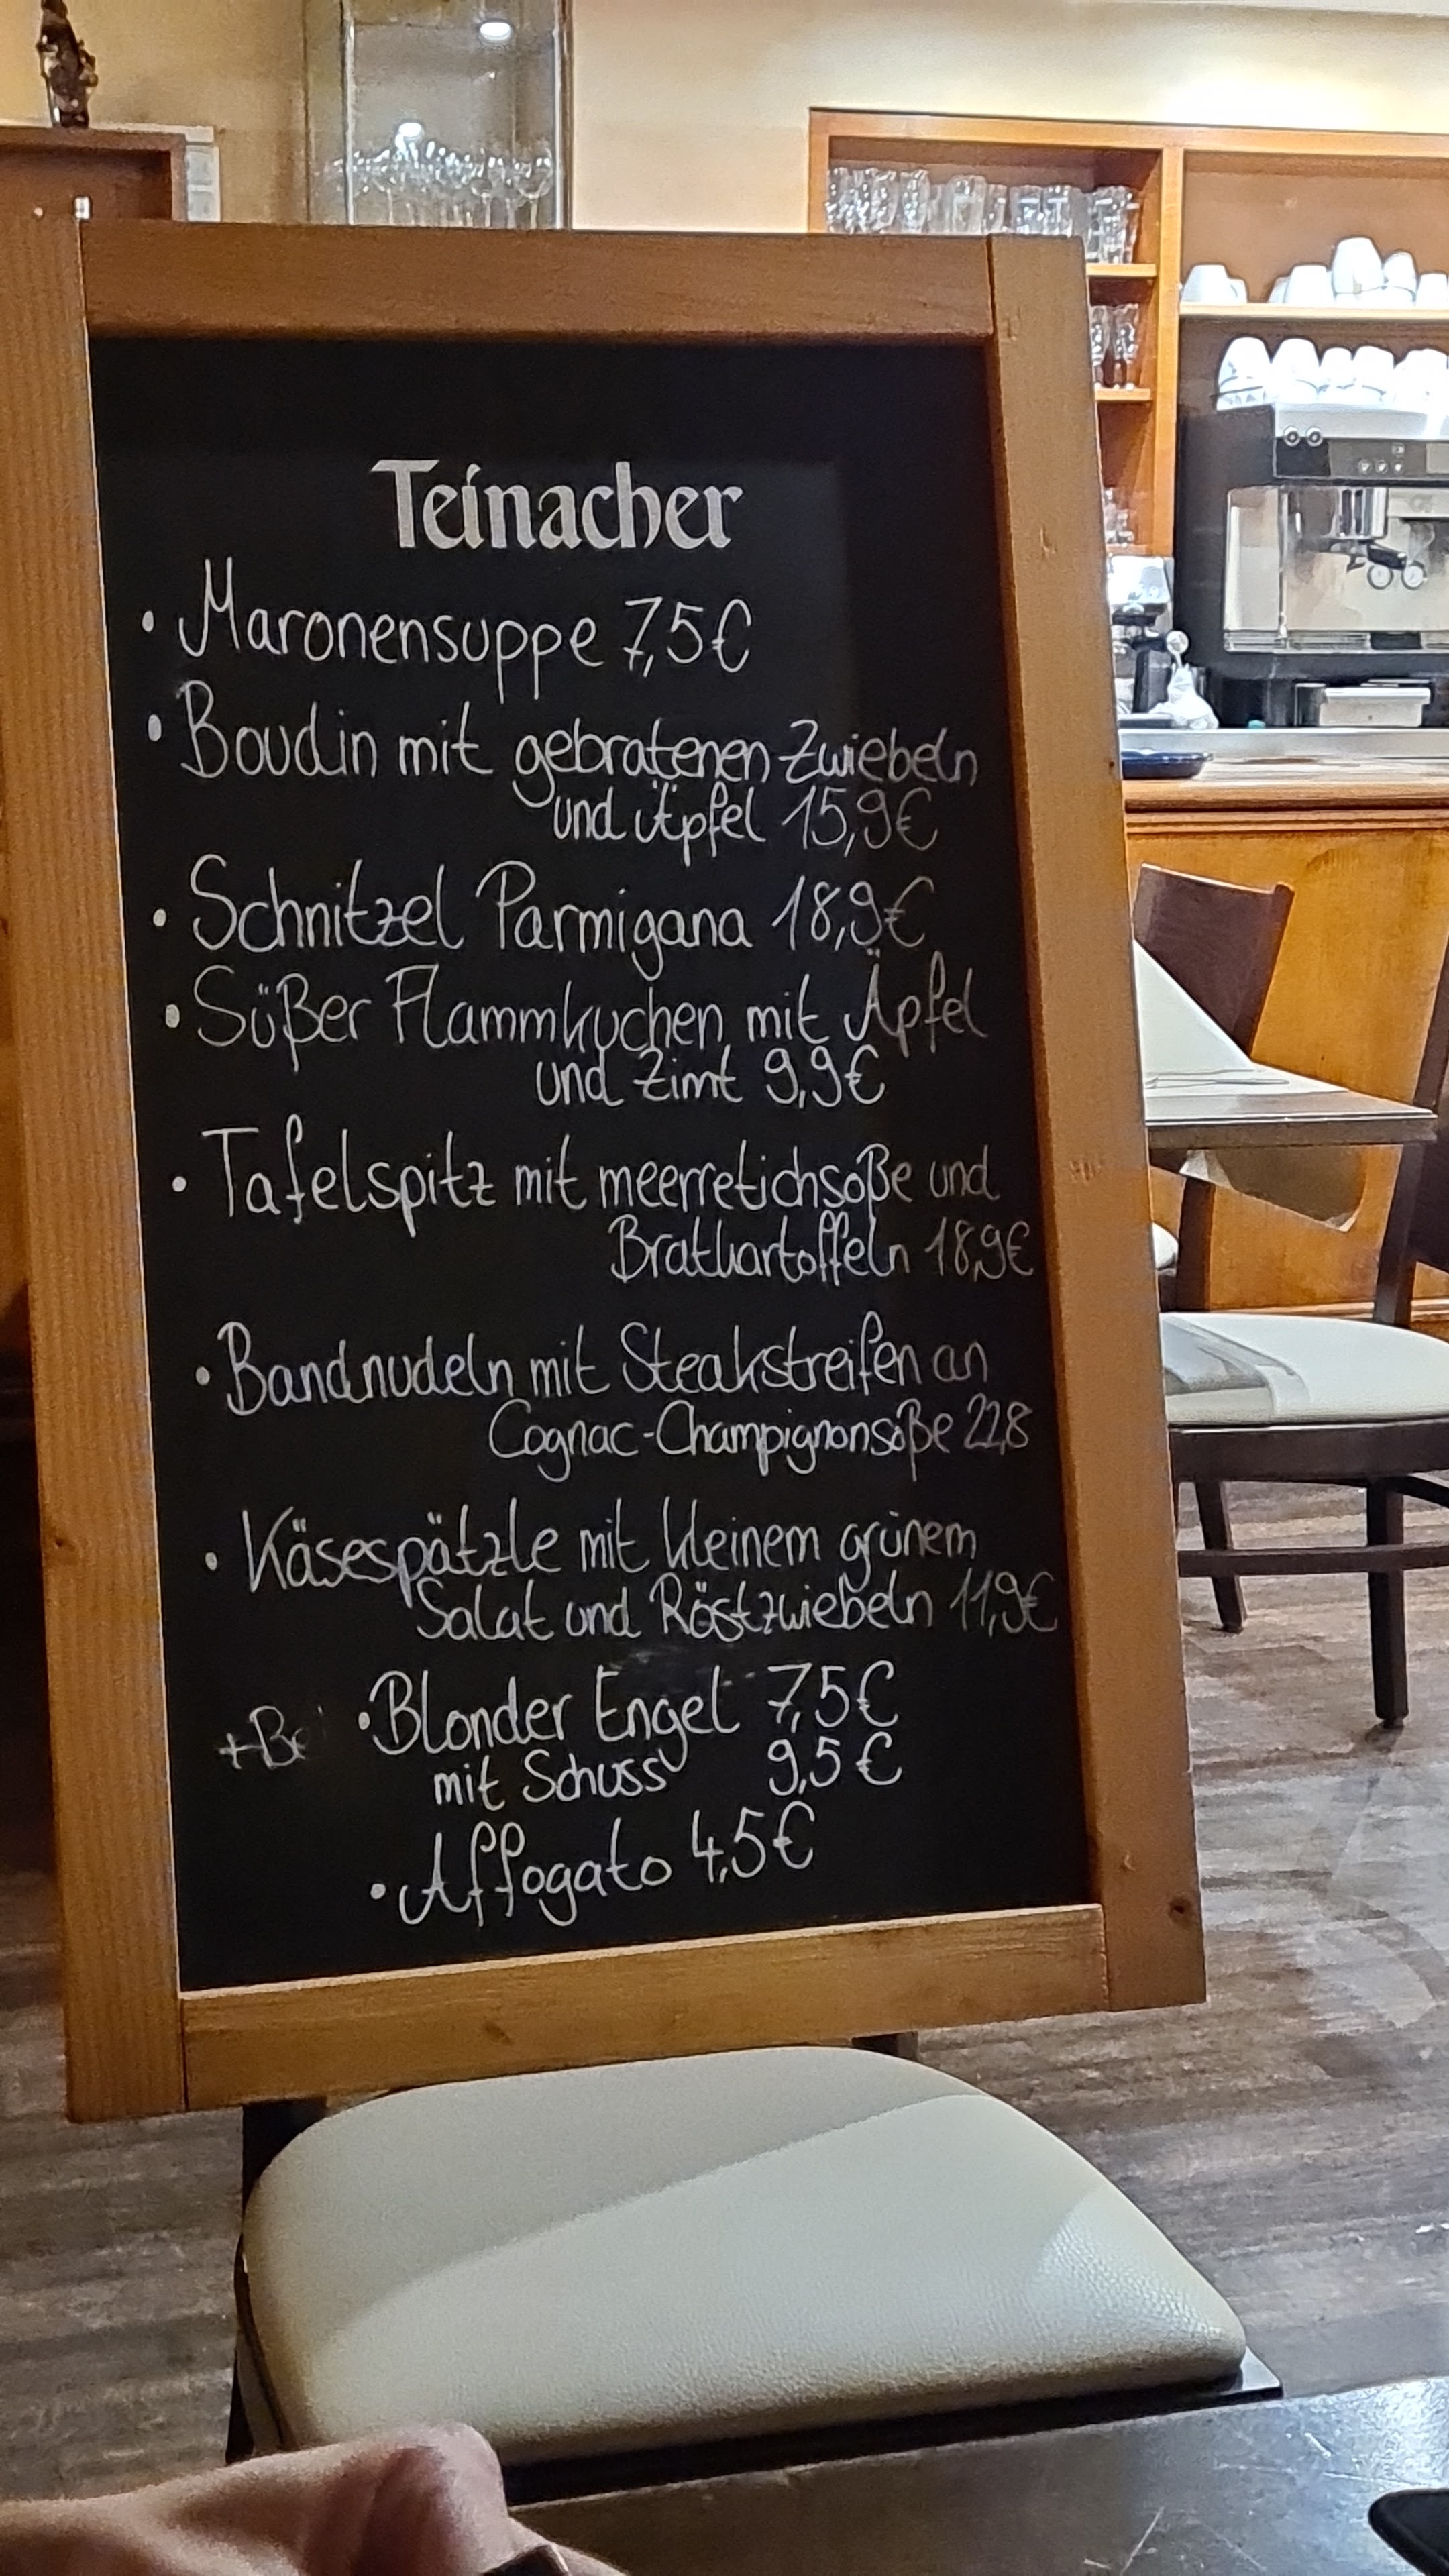 Teinacher
• Maronensuppe 7,5€
• Boudin mit gebratenen Zwiebeln
und Äpfel 15,9€
• Schnitzel Parmigana 18,9€
• Süßer Flammkuchen mit Äpfel
und Zimt 9,9€
• Tafelspitz mit meerretichsoße und
Bratkartoffeln 18,9€
• Bandnudeln mit Steakstreifen an
Cognac-Champignonsoße 22,8
• Käsespätzle mit kleinem grünem
Salat und Röstzwiebeln 11,9€
• Blonder Engel 7,5€
mit Schuss 9,5€
• Affogato 4,5€